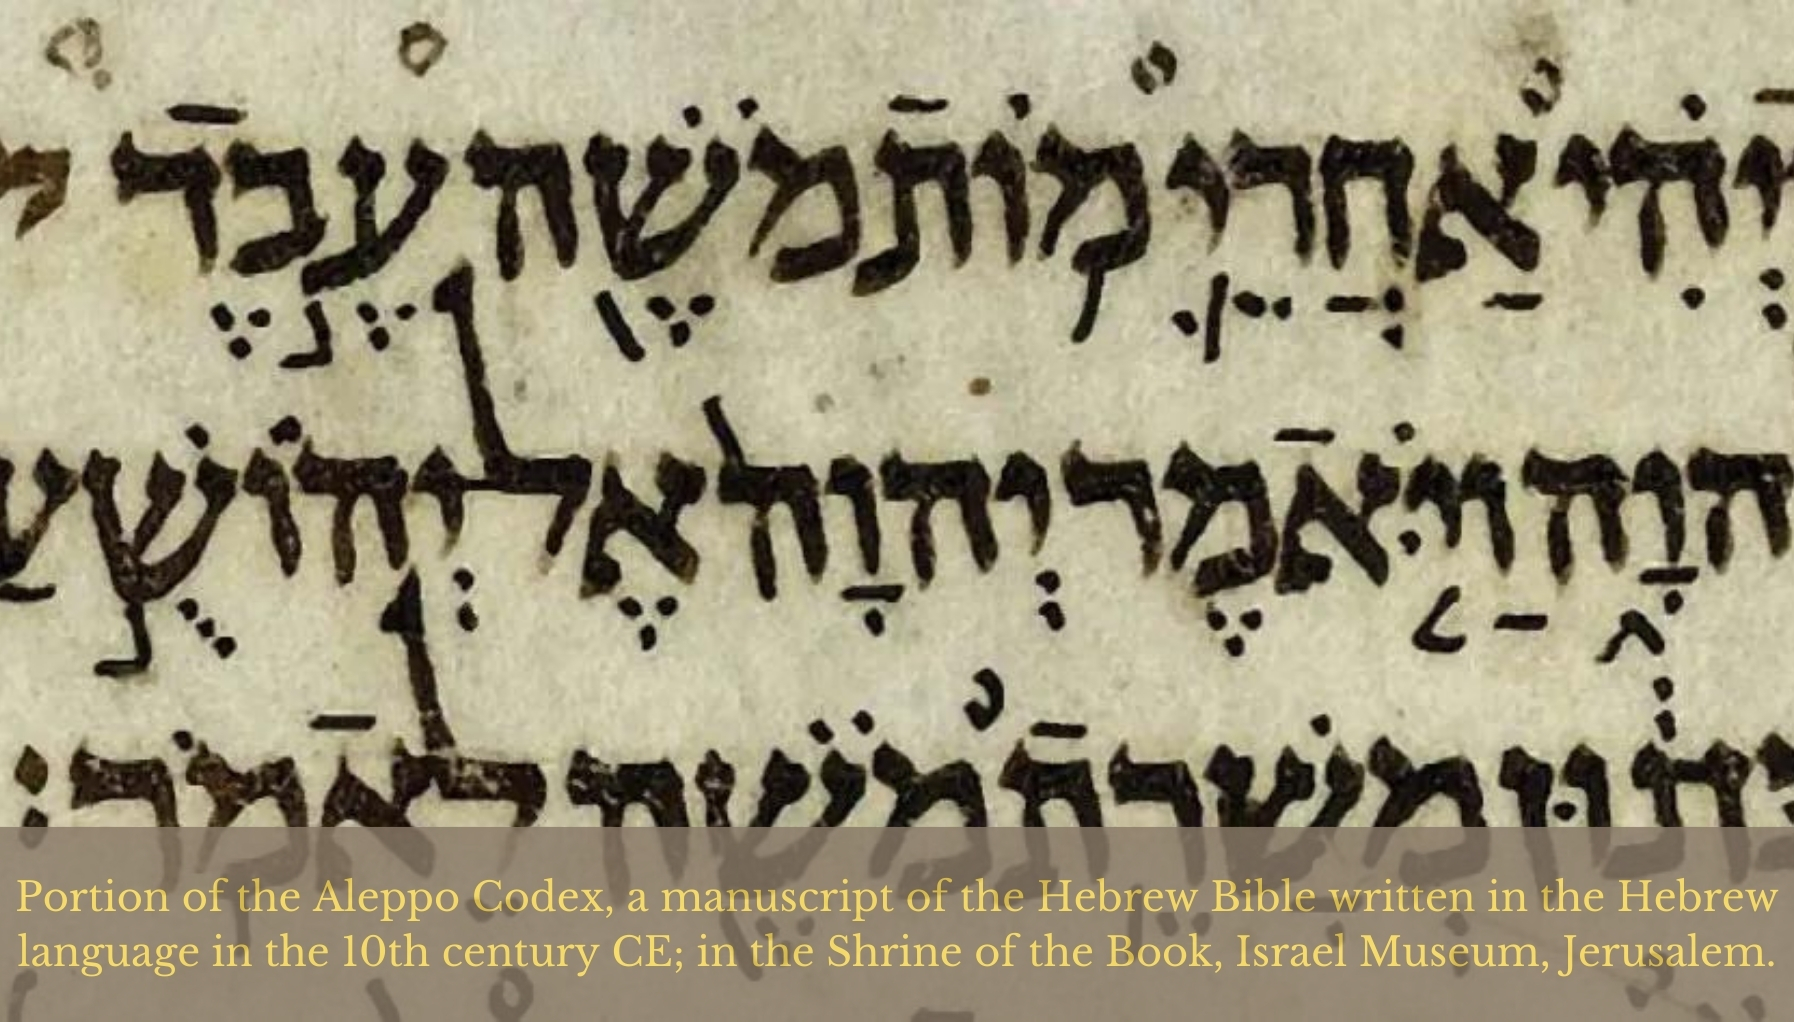 וַיְהִ֗י אַחֲרֵ֛י מ֥וֹת מֹשֶׁ֖ה עֶ֣בֶד
יְהוָ֑ה וַיֹּ֤אמֶר יְהוָה֙ אֶל יְהוֹשֻׁ֣עַ
נ֔וּן מְשָׁרֵ֥ת מֹשֶׁ֖ה לֵאמֹֽר׃
Portion of the Aleppo Codex, a manuscript of the Hebrew Bible written in the Hebrew
language in the 10th century CE; in the Shrine of the Book, Israel Museum, Jerusalem.